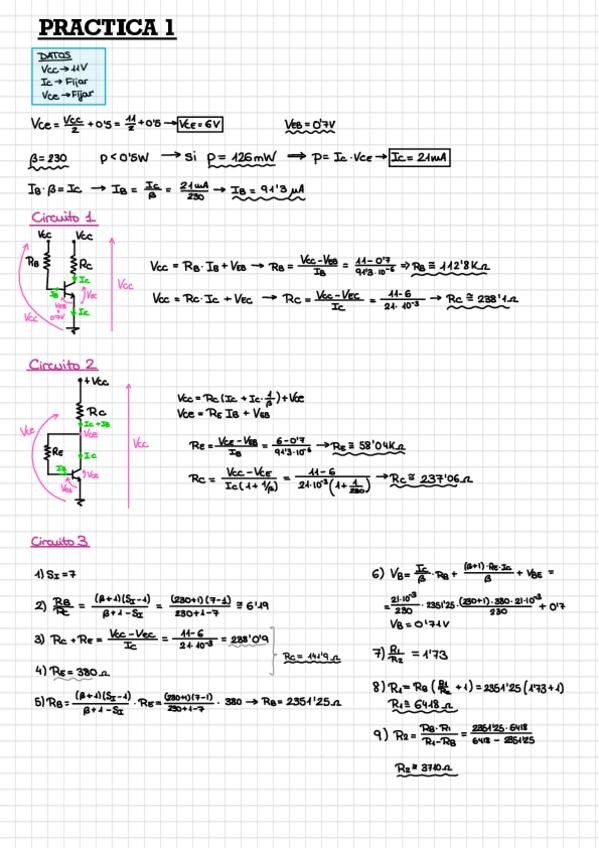 PRACTICA 1
DATOS
Vcc → 11V
Ic → Fijar
Vce → Fijar
Vce = Vcc/2 + 0'5 = 11/2 + 0'5 → Vce = 6V VEB = 0'7V
β = 230 P < 0'5W → Si P = 126mW ⇒ P = Ic · Vce → Ic = 21mA
IB · β = Ic → IB = Ic/β = 21mA/230 → IB = 91'3 μA
Circuito 1
Vcc Vcc
RB Rc
Ic
IB VEC Vcc
VEB = 0'7V
Ic
Vcc
Vcc = RB · IB + VEB → RB = (Vcc - VEB)/IB = (11 - 0'7)/(91'3 · 10⁻⁶) ⇒ RB ≅ 112'8 KΩ
Vcc = Rc · Ic + VEC → Rc = (Vcc - VEC)/Ic = (11 - 6)/(21 · 10⁻³) → Rc ≅ 238'1 Ω
Circuito 2
+ Vcc
Rc
Ic + IB
Vce Vce Vcc
RE Ic
IB Vce
VEB
Vcc = Rc (Ic + Ic · 1/β) + Vce
Vce = RE IB + VEB
RE = (VCE - VEB)/IB = (6 - 0'7)/(91'3 · 10⁻⁶) → RE ≅ 58'04 KΩ
Rc = (Vcc - VCE)/(Ic (1 + 1/β)) = (11 - 6)/(21 · 10⁻³ (1 + 1/230)) → Rc ≅ 237'06 Ω
Circuito 3
1) SI = 7
2) RB/Rc = (β+1)(SI-1)/(β+1-SI) = (230+1)(7-1)/(230+1-7) ≅ 6'19
3) Rc + RE = (Vcc - VEC)/Ic = (11 - 6)/(21 · 10⁻³) = 238'09
Rc = 141'9 Ω
4) RE = 380 Ω
5) RB = (β+1)(SI-1)/(β+1-SI) · RE = (230+1)(7-1)/(230+1-7) · 380 → RB = 2351'25 Ω
6) VB = Ic/β · RB + (β+1) · RE · Ic/β + VBE =
= 21·10⁻³/230 · 2351'25 · (230+1) · 380 · 21·10⁻³/230 + 0'7
VB = 0'71V
7) R1/R2 = 1'73
8) R1 = RB (R1/R2 + 1) = 2351'25 (1'73 + 1)
R1 ≅ 6418 Ω
9) R2 = RB · R1/(R1 - RB) = 2351'25 · 6418/(6418 - 2351'25)
R2 ≅ 3710 Ω